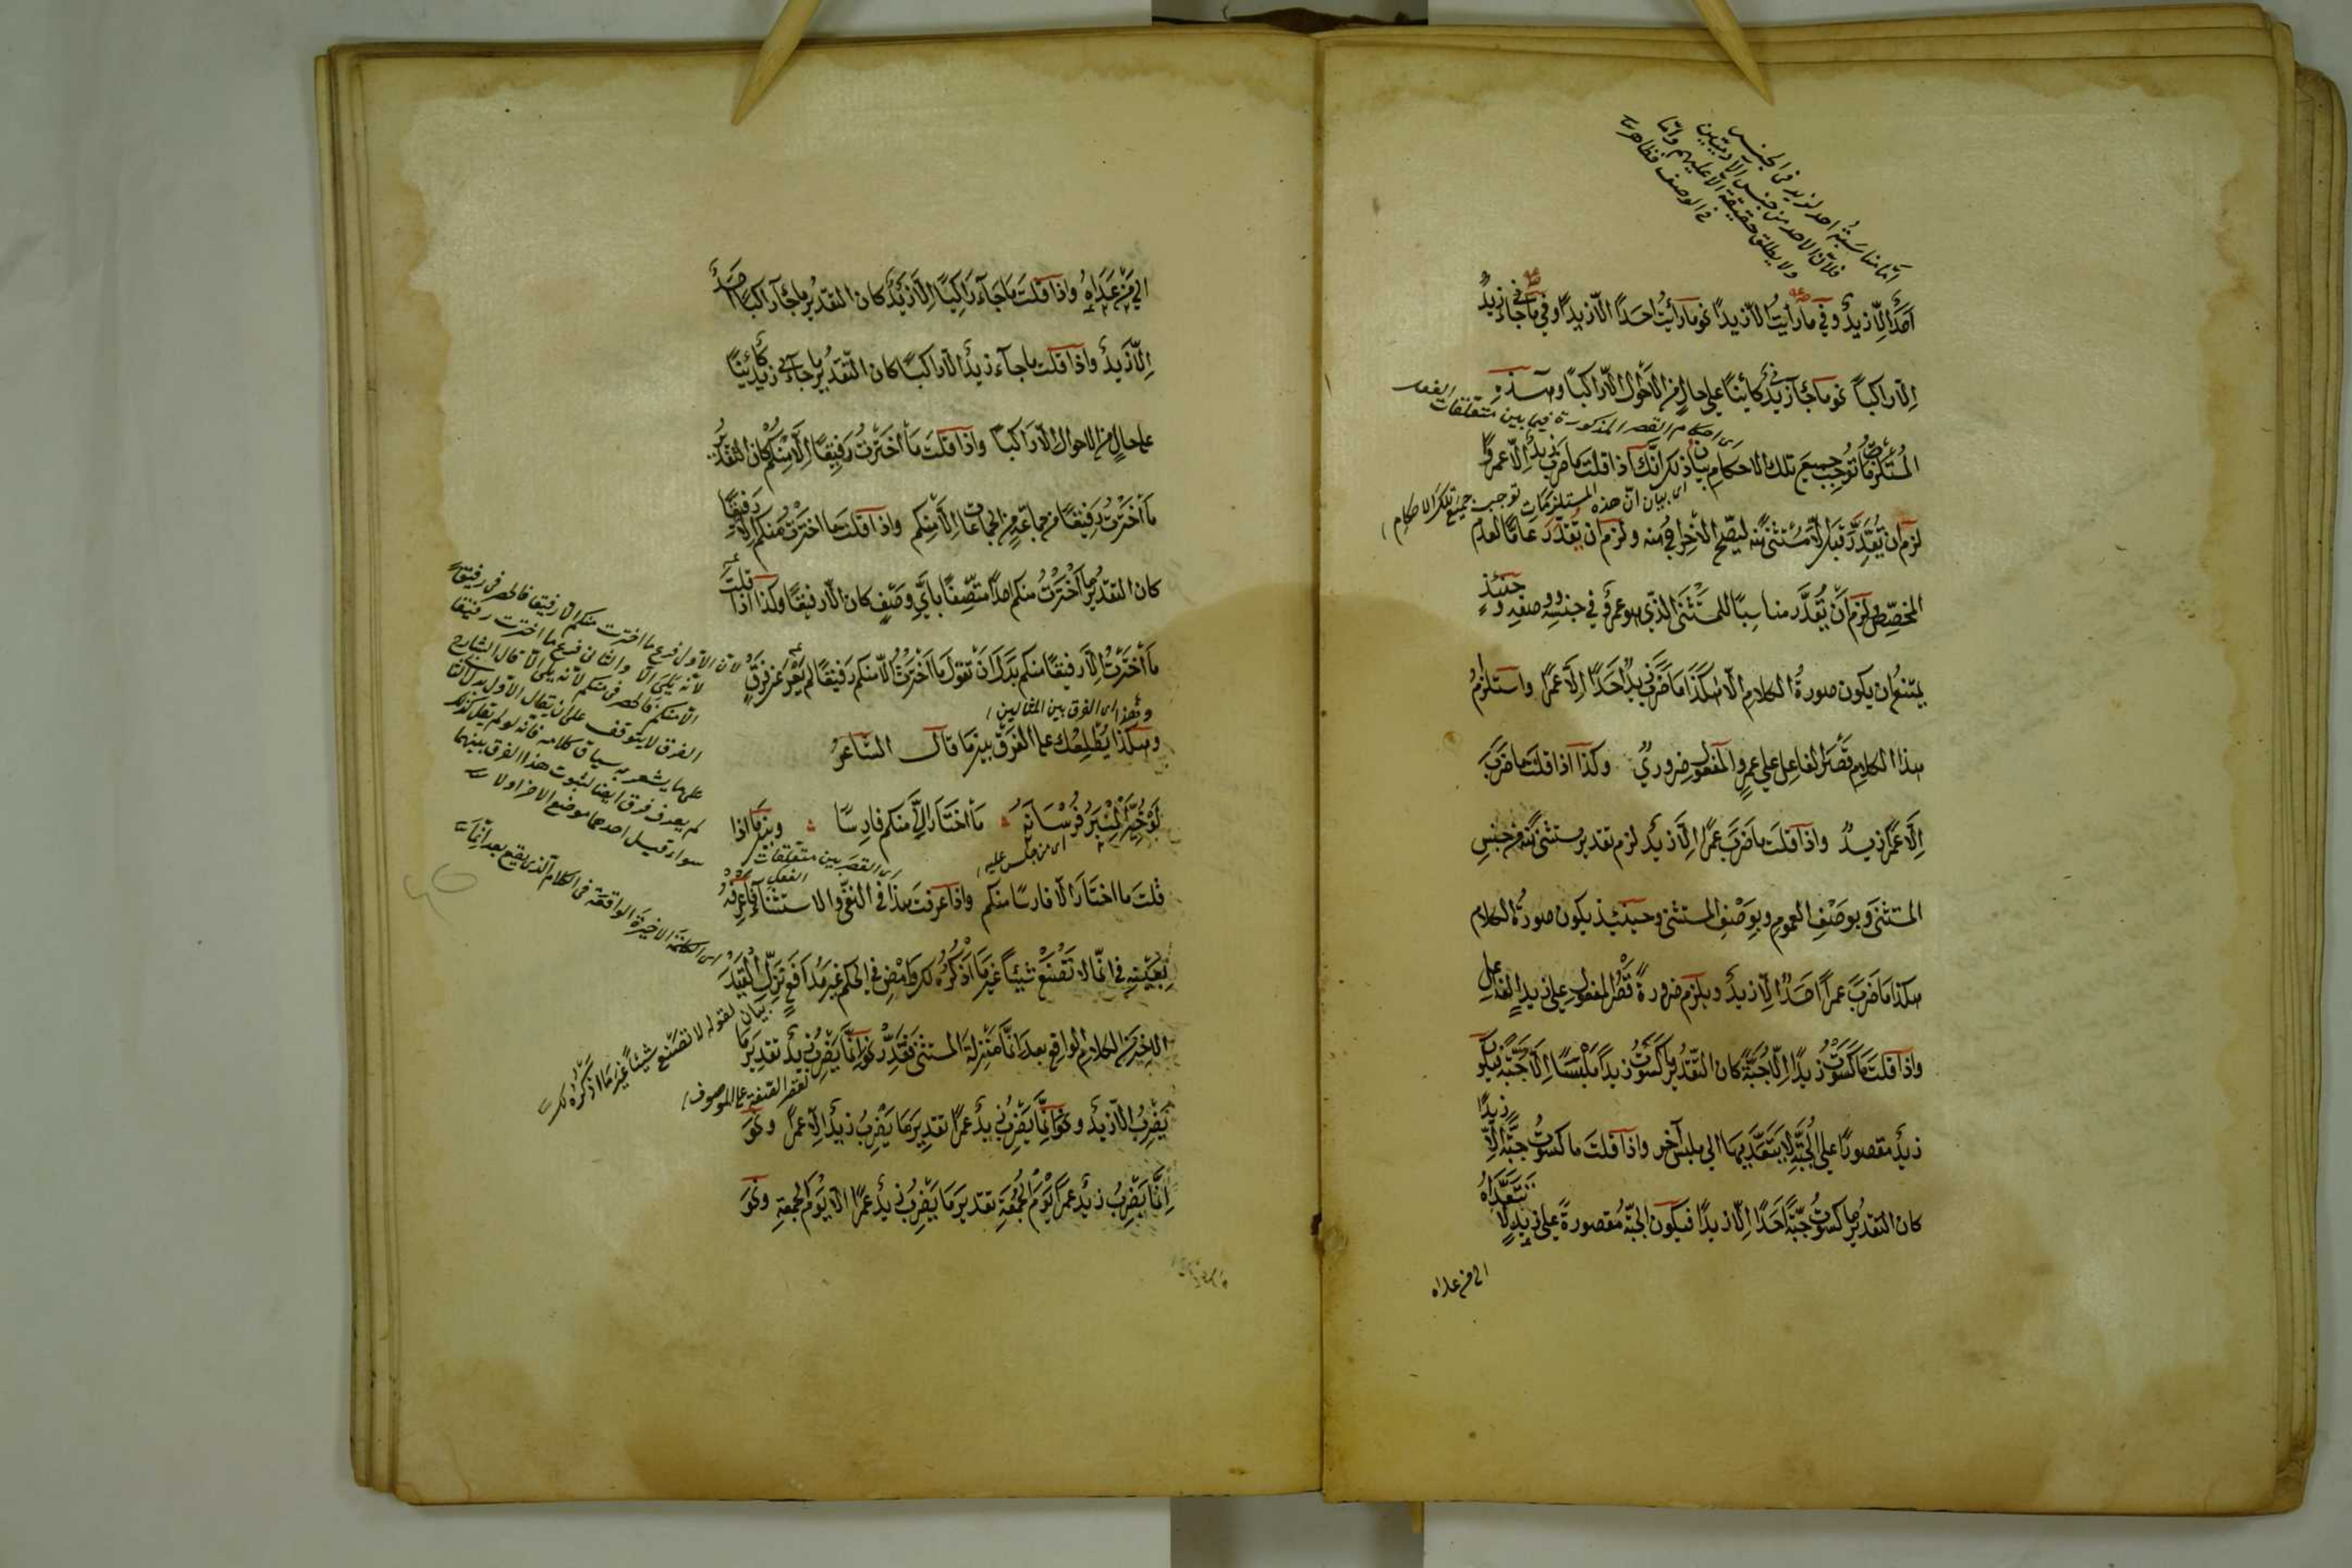 امّا مناسبة احد لزيد فى الجنس
فلانّ الاحد من جنس الآدميّين
ولا يطلق حقيقة الا عليهم وامّا
فى الوصف فظاهر
اَحَدٌ اِلّا زيدٌ وفي ما رايتُ الّا زيدًا نحو ما رأيتُ احدًا الّا زيدًا وفي ما جاءني زيدٌ
اِلّا راكبًا نحو ما جآءني زيدٌ كائِنًا على حالٍ من الاحوال الّا راكبًا وهذه
اى احكام القصر المذكورة فيما بين متعلّقات الفعل
المُستلزماتُ تُوجِبُ جميعَ تلك الاحكام بيانُ ذلك انّك اذا قلتَ ما ضربَ زيدٌ اِلّا عمروًا
اى بيان انّ هذه المستلزمات توجب جميع تلك الاحكام
لزم ان يُقَدَّرَ قبل اِلّا مُستثنًى منه ليصحّ الاخراجُ منه ولزم ان يُقدَّرَ عامًّا لعدم
المخصِّصِ ولزم اَنْ يُقدَّر مناسبًا للمستثنَى الذي هو عمرو في جنسه ووصفه وحينئذٍ
يمتنعُ ان يكون صورةُ الكلامِ الّا هكذَا ما ضرَبَ زيدٌ اَحدًا اِلّا عمرًا واستلزمُ
هذا الكلامِ قصْرَ الفاعلِ على عمرٍو المفعولِ ضروريٌّ وكذا اذا قلتَ ما ضربَ
اِلّا عمرًا زيدٌ واذا قلتَ ما ضربَ عمرًا اِلّا زيدٌ لزم تقدير مستثنى منه من جنسِ
المستثنى وبوصْفِ العموم وبوصْفِ المستثنى وحينئذ يكون صورةُ الكلام
هكذا ما ضربَ عمرًا احدٌ الّا زيدٌ ويلزم ضرورةً قصْرُ المفعول على زيدٍ الفاعلِ
واذا قلتَ ما كسَوْتُ زيدًا اِلّا جُبّةً كان التقديرُ ما كسَوْتُ زيدًا مَلْبَسًا اِلّا جُبّةً فيكون
زيدٌ مقصورًا على الجبّةِ لا يتعدّيها الى ملبسٍ آخر واذا قلتَ ما كسوتُ جبّةً اِلّا زيدًا
كان التقديرُ ما كسوتُ جبّةً احدًا الّا زيدًا فيكون الجبّةُ مقصورةً على زيدٍ لا يتعدّاه
الى من عداه
الى مَنْ عَداهُ واذا قلتَ ما جآء راكبًا الّا زيدٌ كان التقديرُ ما جآء راكبًا احدٌ
اِلّا زيدٌ واذا قلت ما جآء زيدٌ الّا راكبًا كان التقديرُ ما جآء زيدٌ كائِنًا
على حالٍ من الاحوال الّا راكبًا واذا قلتَ ما اخترتُ رفيقًا اِلّا منكم كان التقديرُ
ما اخترتُ رفيقًا من جماعةٍ من الجماعات اِلّا منكم واذا قلتَ ما اخترتُ منكم الّا رفيقًا
كان التقديرُ ما اخترتُ منكم احدًا متّصفًا بايِّ وصفٍ كان الّا رفيقًا وكذا اذا قلتَ
ما اخترتُ اِلّا رفيقًا منكم بدل اَنْ تقول ما اخترتُ الّا منكم رفيقًا لم يَعْرَ عن فرقٍ
وبهذا اى الفرق بين المثالين
وهكذا يُطلعُك على الفرق بين ما قال الشاعرُ
لَوْ خُيِّرَ الْمِنْبَرُ فُرْسَانَهُ ؞ مَا اخْتَارَ اِلّا منكم فارسًا ؞ وبين ما اذا
اى من جلس عليه
اى القصر بين متعلّقات الفعل
قلتَ ما اختار الّا فارسًا منكم واذا عرفتَ هذا في النفى والاستثناء فاعرفْهُ
بعينه في انّما لا تصْنَعْ شيئًا غيرَ ما اَذْكُرُه لك وامضِ في الحكم غير مُدافعٍ نَزِّلِ القيدَ
الاخيرَ من الكلامِ الواقع بعد انّما منزلة المستثنى فقدِّرْ نحو انّما يضربُ زيدٌ تقديرَ ما
لقصر الصفة على الموصوف
يضربُ الّا زيدٌ ونحو انّما يضربُ زيدٌ عمرًا تقديرَ ما يضربُ زيدٌ الّا عمرًا ونحو
اِنّما يضربُ زيدٌ عمرًا يومَ الجمُعةِ تقديرَ ما يضربُ زيدٌ عمرًا الّا يومَ الجمعةِ ونحو
لانّ الاول فرع ما اخترت منكم الّا رفيقا فالحصر فى رفيقًا
لانّه يلى الّا والثانى فرع ما اخترت رفيقا
الّا منكم فالحصر فى منكم لانّه يلى الّا قال الشارح
الفرق لا يتوقف على ان يقال الاول بدل الثانى
على ما يشعر به سياق كلامه فانّه لو لم يقل كذلك
لم يعرف فرق ايضا لثبوت هذا الفرق بينهما
سواء قيل احدهما موضع الاخر او لا
اى الكلمة الاخيرة الواقعة فى الكلام الّذى يقع بعد انّما
بيان لقوله لا تصنع شيئًا غير ما اذكره لك